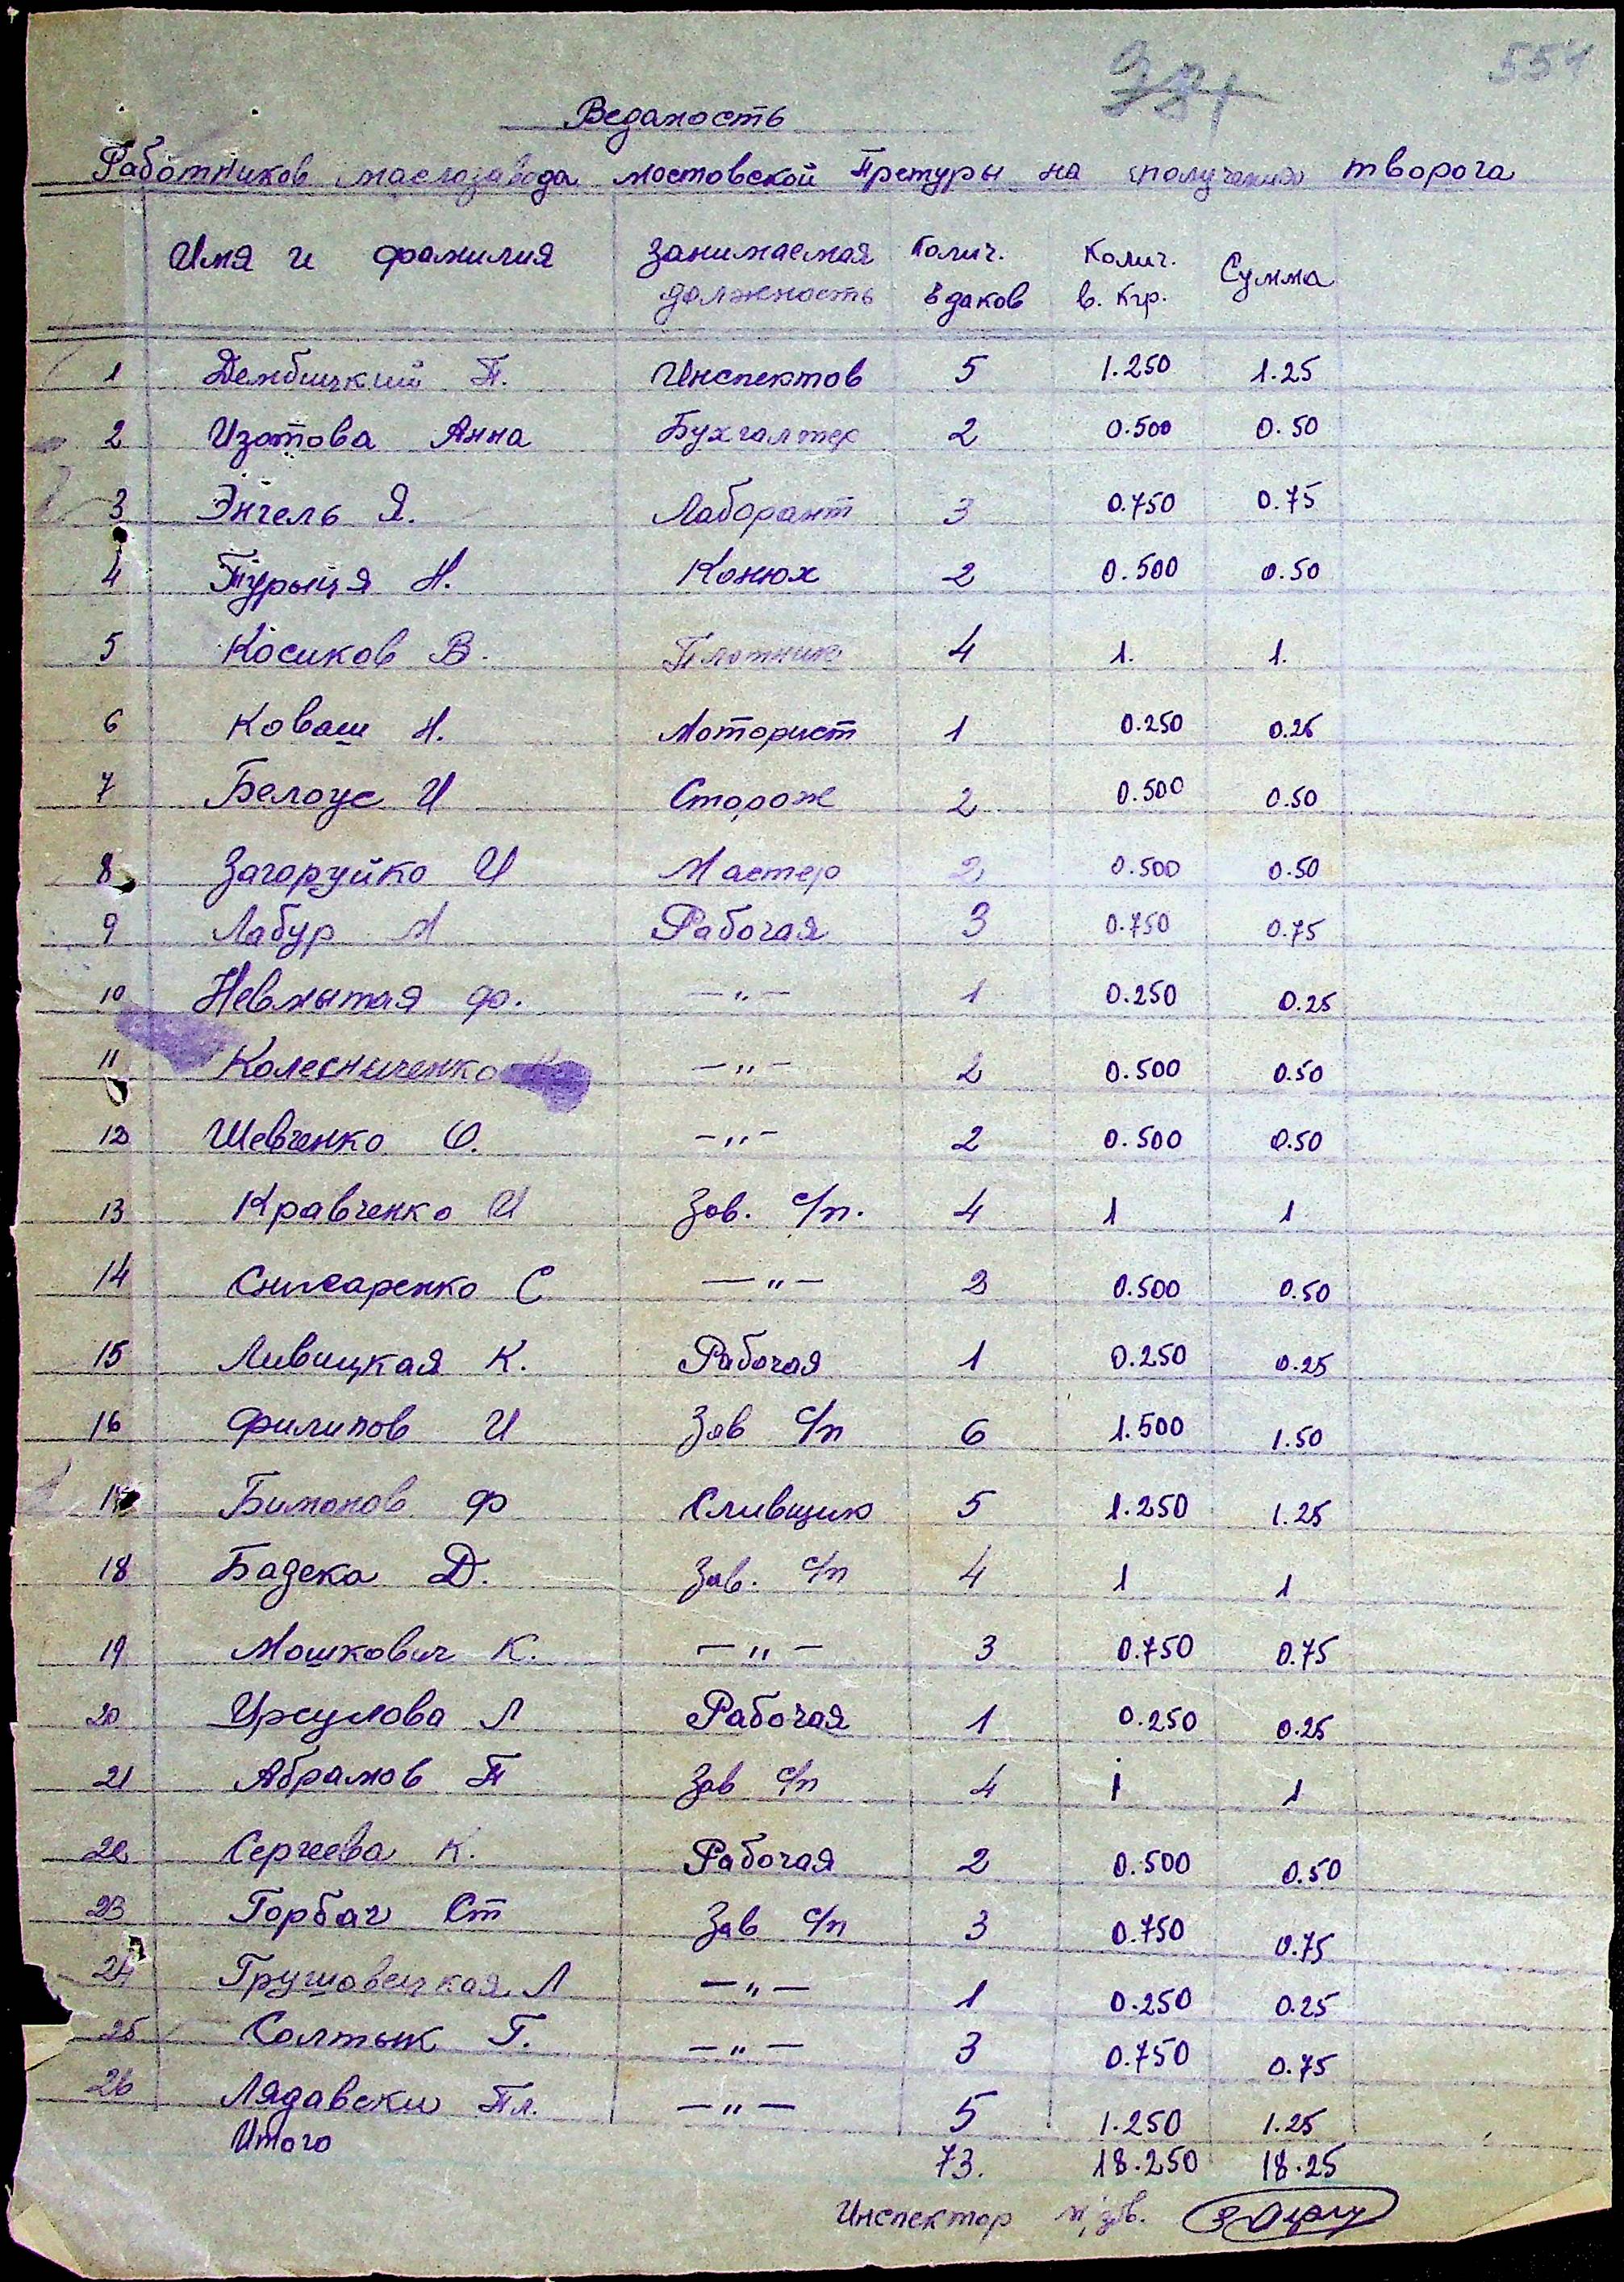 554
Ведамость
Работников маслозавода мостовской Претуры на получение творога
Имя и фамилия Занимаемая должность Колич. Едаков Колич. в. Кгр. Сумма
1 Дембицкий П. Инспектов 5 1.250 1.25
2 Изотова Анна Бухгалтер 2 0.500 0.50
3 Энгель Я. Лаборант 3 0.750 0.75
4 Турыця Н. Конюх 2 0.500 0.50
5 Косиков В. Плотник 4 1. 1.
6 Коваш Н. Моторист 1 0.250 0.25
7 Белоус И Сторож 2 0.500 0.50
8 Загоруйко И Мастер 2 0.500 0.50
9 Лабур М Рабочая 3 0.750 0.75
10 Невмытая Ф. —"— 1 0.250 0.25
11 Колесниченко —"— 2 0.500 0.50
12 Шевченко О. —"— 2 0.500 0.50
13 Кравченко И Зав. с/п. 4 1 1
14 Снисаренко С —"— 2 0.500 0.50
15 Ливицкая К. Рабочая 1 0.250 0.25
16 Филипов И Зав с/п 6 1.500 1.50
17 Бимонов Ф Сливщик 5 1.250 1.25
18 Бадека Д. Зав. с/п 4 1 1
19 Мошкович К. —"— 3 0.750 0.75
20 Урсулова Л Рабочая 1 0.250 0.25
21 Абрамов П Зав с/п 4 1 1
22 Сергеева К. Рабочая 2 0.500 0.50
23 Горбач Ст Зав с/п 3 0.750 0.75
24 Грушовецкая Л —"— 1 0.250 0.25
25 Солтык Г. —"— 3 0.750 0.75
26 Лядавски Пл. —"— 5 1.250 1.25
Итого 73. 18.250 18.25
Инспектор